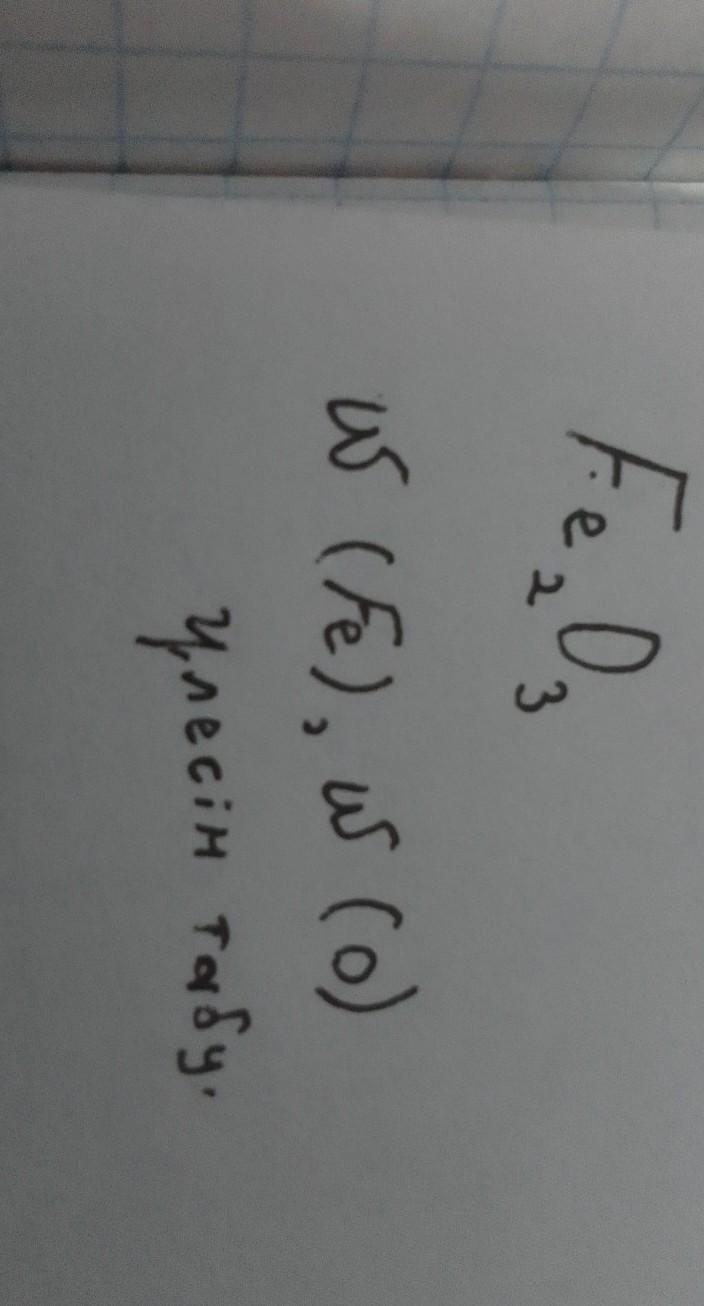 Fe₂O₃
W (Fe), W (O)
Үлесін табу.